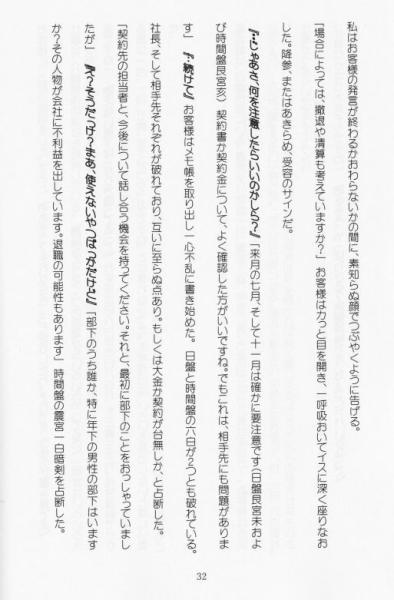 私はお客様の発言が終わるかおわらないかの間に、素知らぬ顔でつぶやくように告げる。
「場合によっては、撤退や清算も考えていますか?」お客様はカっと目を開き、一呼吸おいてイスに深く座りなお
した。降参、またはあきらめ、受容のサインだ。
『…じゃあさ、何を注意したらいいのかしら?』「来月の七月、そして十一月は確かに要注意です(日盤艮宮未およ
び時間盤艮宮亥)契約書か契約金について、よく確認した方がいいですね。でもこれは、相手先にも問題がありま
す」『…続けて』お客様はメモ帳を取り出し一心不乱に書き始めた。日盤と時間盤の六白が2つとも破れている。
社長、そして相手先それぞれが破れており、互いに至らぬ点あり。もしくは大金か契約が台無しか、と占断した。
「契約先の担当者と、今後について話し合う機会を持ってください。それと、最初に部下のことをおっしゃっていまし
たが」『え?そうだっけ?まあ、使えないやつばっかだけど』「部下のうち誰か、特に年下の男性の部下はいます
か?その人物が会社に不利益を出しています。退職の可能性もあります」時間盤の震宮一白暗剣を占断した。
32